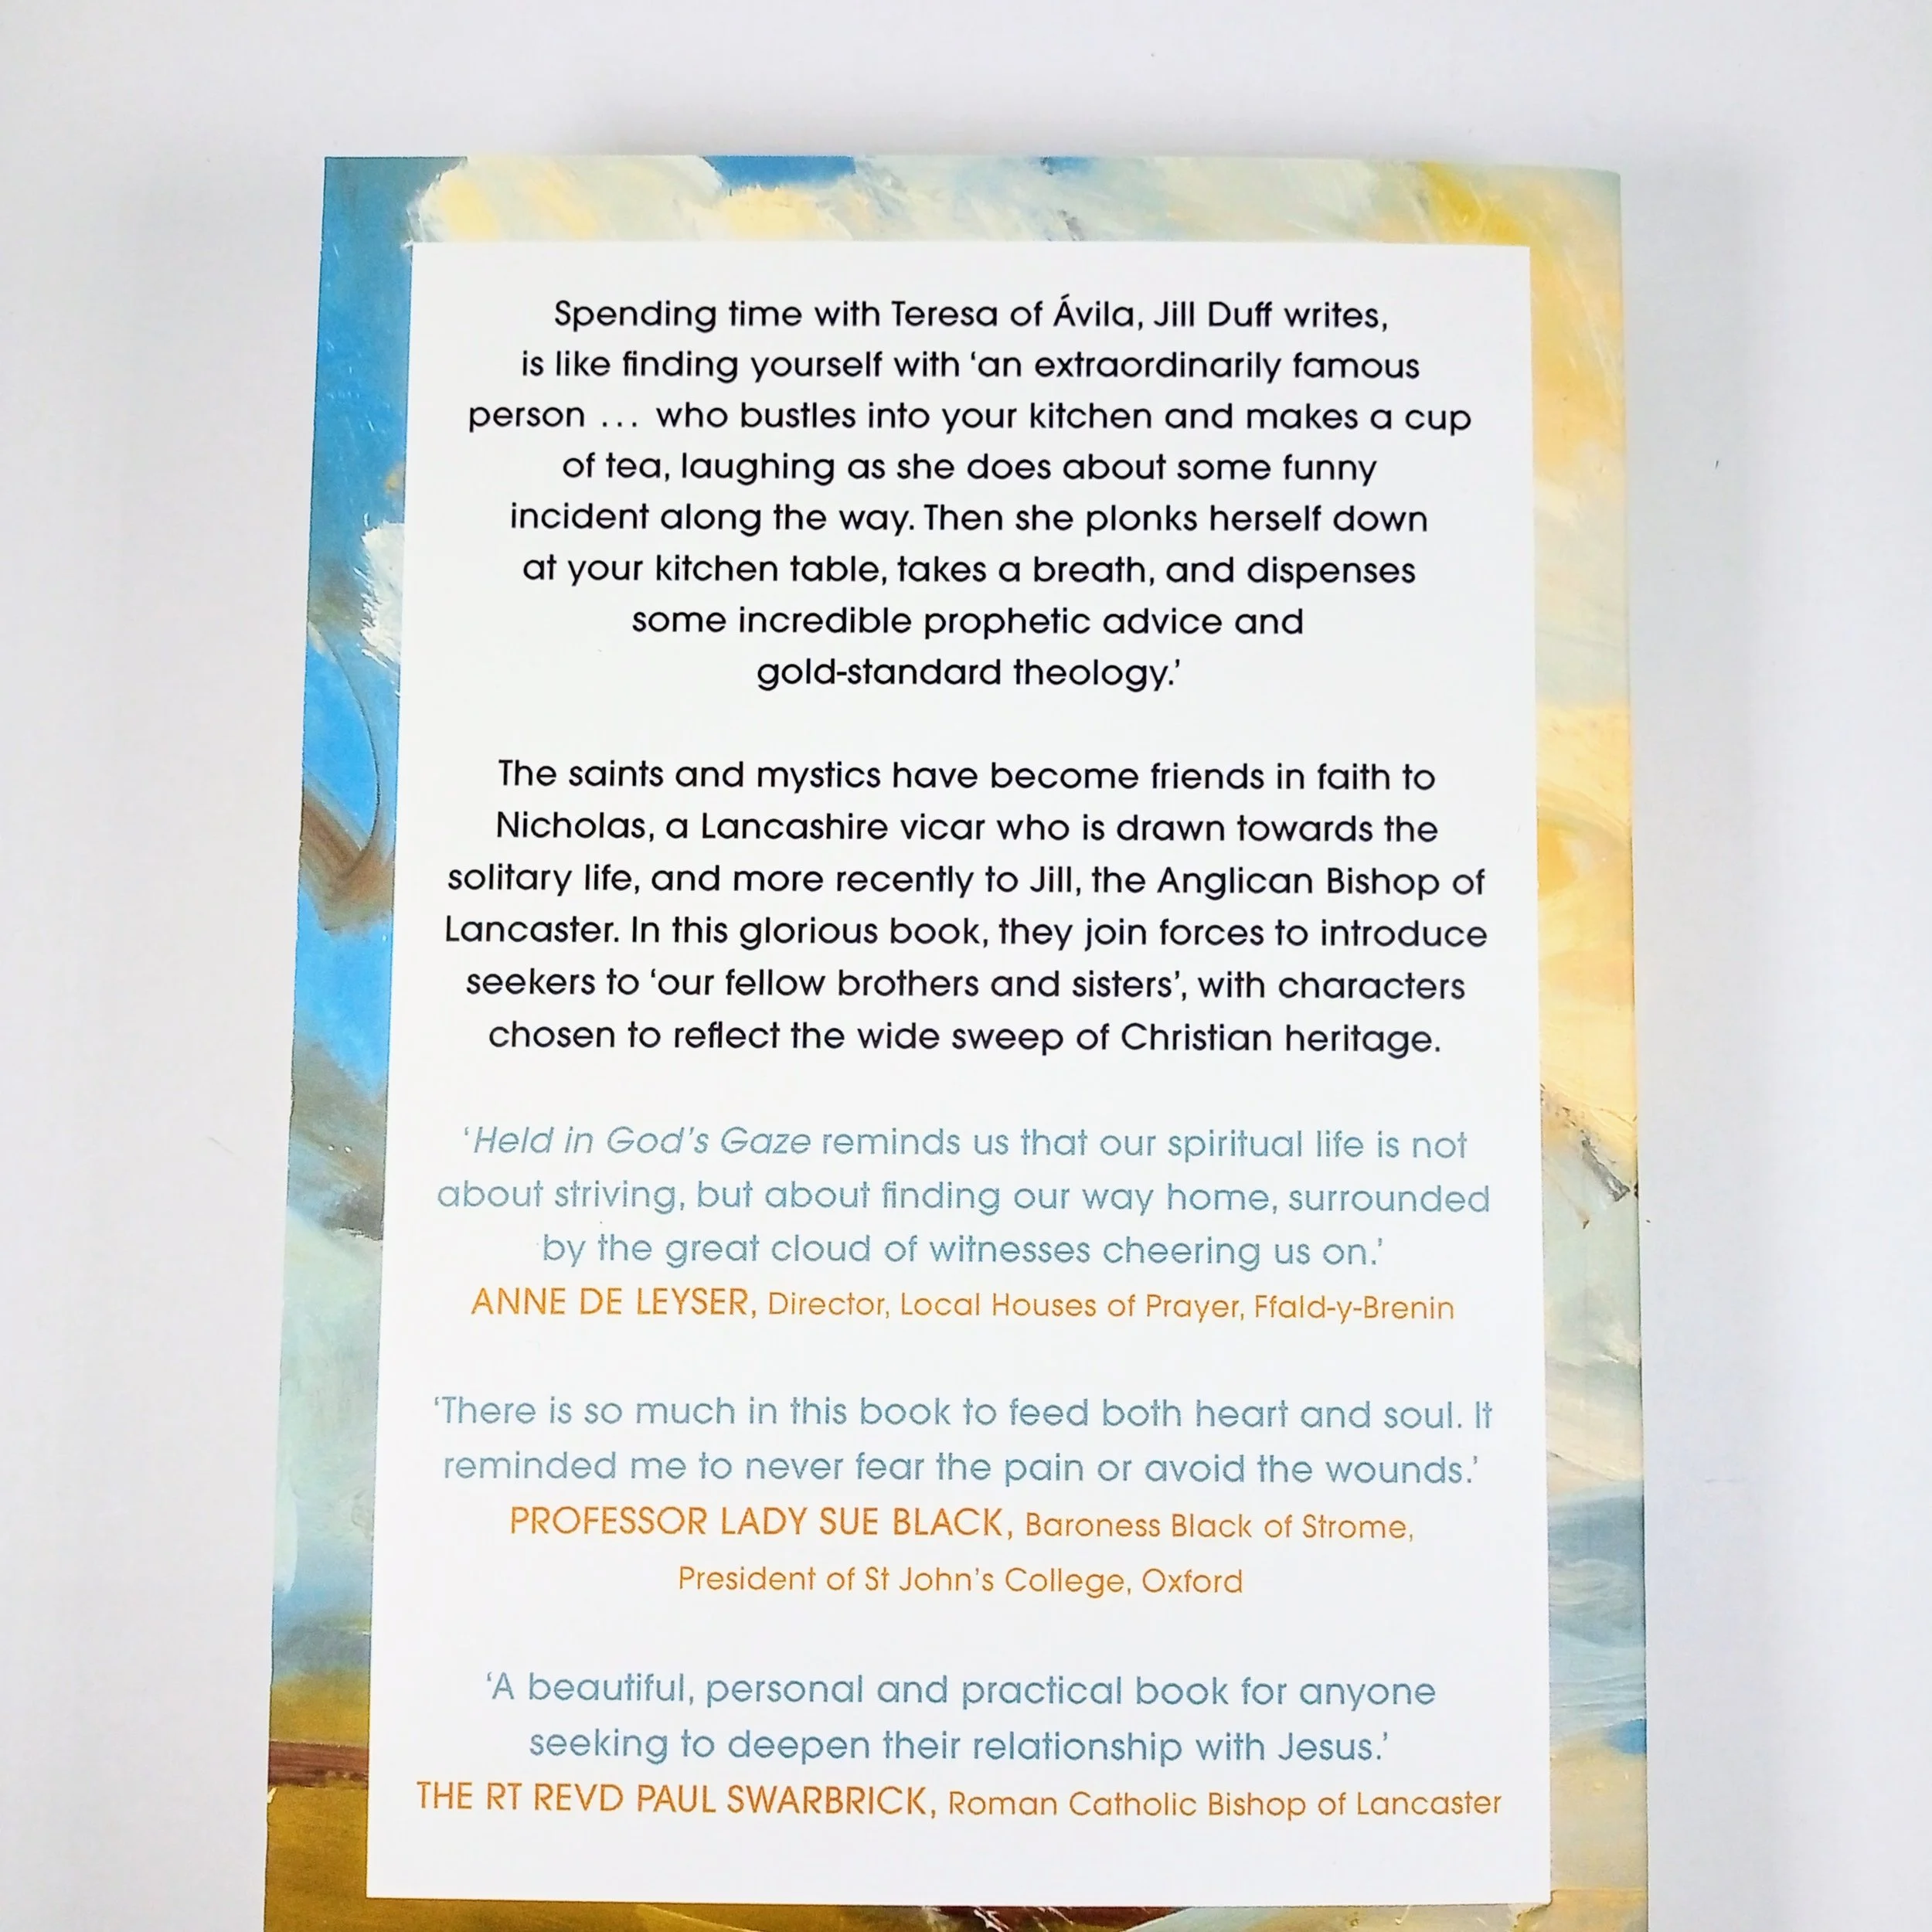 Spending time with Teresa of Ávila, Jill Duff writes,
is like finding yourself with ‘an extraordinarily famous
person … who bustles into your kitchen and makes a cup
of tea, laughing as she does about some funny
incident along the way. Then she plonks herself down
at your kitchen table, takes a breath, and dispenses
some incredible prophetic advice and
gold-standard theology.’
The saints and mystics have become friends in faith to
Nicholas, a Lancashire vicar who is drawn towards the
solitary life, and more recently to Jill, the Anglican Bishop of
Lancaster. In this glorious book, they join forces to introduce
seekers to ‘our fellow brothers and sisters’, with characters
chosen to reflect the wide sweep of Christian heritage.
‘Held in God’s Gaze reminds us that our spiritual life is not
about striving, but about finding our way home, surrounded
by the great cloud of witnesses cheering us on.’
ANNE DE LEYSER, Director, Local Houses of Prayer, Ffald-y-Brenin
‘There is so much in this book to feed both heart and soul. It
reminded me to never fear the pain or avoid the wounds.’
PROFESSOR LADY SUE BLACK, Baroness Black of Strome,
President of St John’s College, Oxford
‘A beautiful, personal and practical book for anyone
seeking to deepen their relationship with Jesus.’
THE RT REVD PAUL SWARBRICK, Roman Catholic Bishop of Lancaster